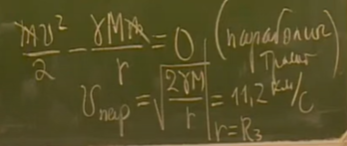 mv²/2 - γMm/r = 0 (параболич
траект)
v_пар = √(2γM/r)|_{r=R₃} = 11,2 км/с